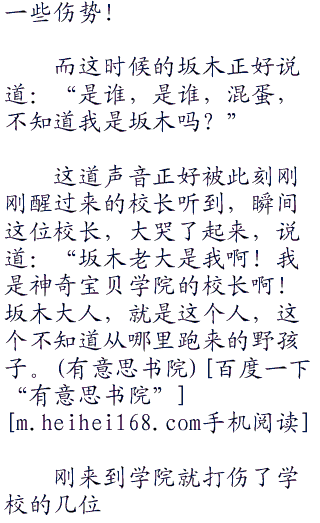 一些伤势！
而这时候的坂木正好说
道：“是谁，是谁，混蛋，
不知道我是坂木吗？”
这道声音正好被此刻刚
刚醒过来的校长听到，瞬间
这位校长，大哭了起来，说
道：“坂木老大是我啊！我
是神奇宝贝学院的校长啊！
坂木大人，就是这个人，这
个不知道从哪里跑来的野孩
子。(有意思书院)[百度一下
“有意思书院”]
[m.heihei168.com手机阅读]
刚来到学院就打伤了学
校的几位